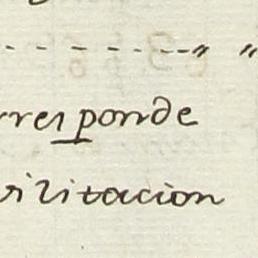 rresponde
vilitacion